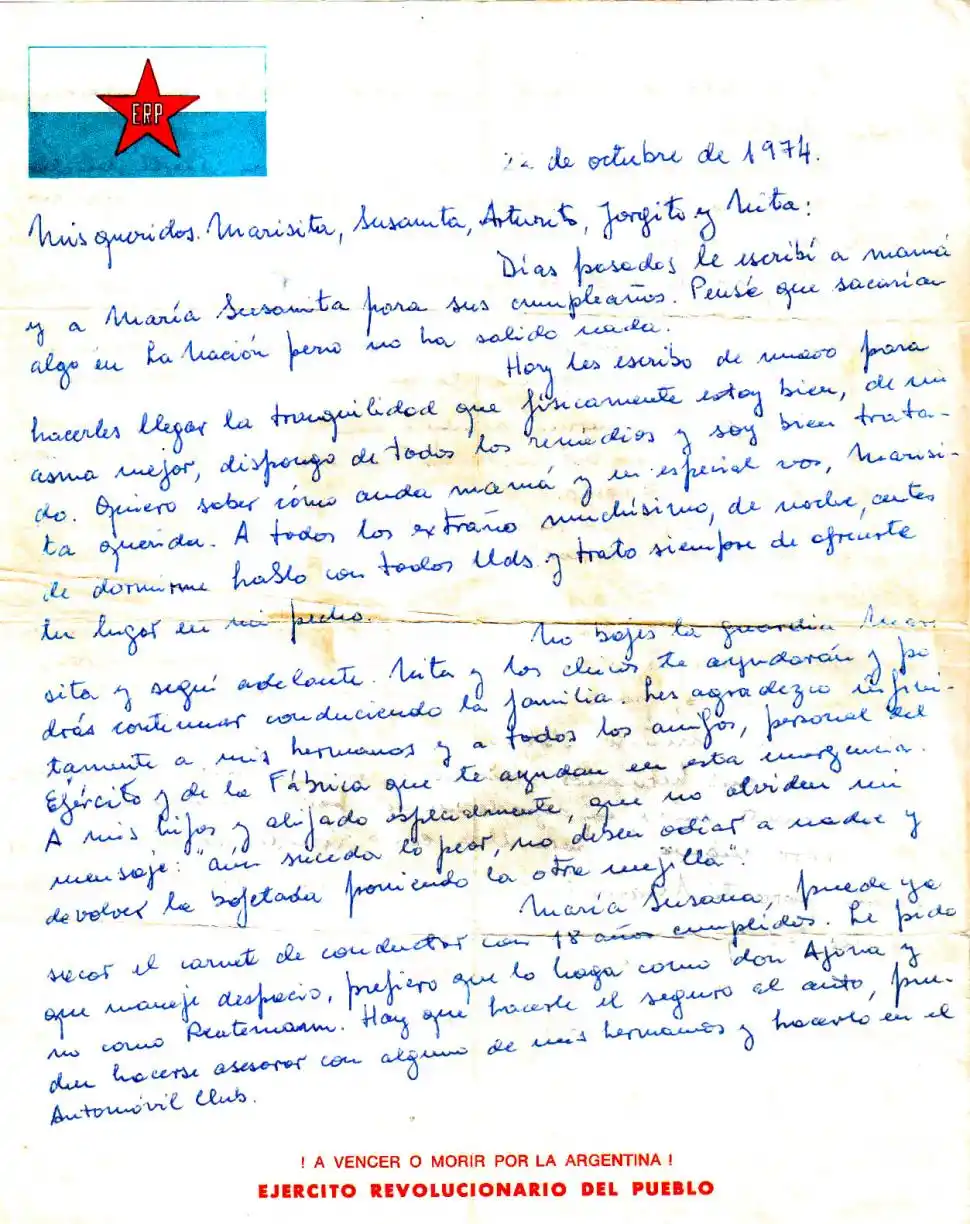 ERP
22 de octubre de 1974.
Mis queridos Marisita, Susanita, Arturito, Jorgito y Nita:
Días pasados le escribí a mamá
y a María Susanita para sus cumpleaños. Pensé que sacarían
algo en La Nación pero no ha salido nada.
Hoy les escribo de nuevo para
hacerles llegar la tranquilidad que físicamente estoy bien, de mi
asma mejor, dispongo de todos los remedios y soy bien trata-
do. Quiero saber cómo anda mamá y en especial vos, Marisi-
ta querida. A todos los extraño muchísimo, de noche, antes
de dormirme hablo con todos Uds. y trato siempre de ofrecerte
tu lugar en mi pecho.
No bajes la guardia Mari
sita y seguí adelante. Nita y los chicos te ayudarán y po
drás continuar conduciendo la familia. Les agradezco infini-
tamente a mis hermanos y a todos los amigos, personal del
Ejército y de la Fábrica que te ayudan en esta emergencia.
A mis hijos y ahijado especialmente, que no olviden mi
mensaje: "aún suceda lo peor, no deben odiar a nadie y
devolver la bofetada poniendo la otra mejilla".
María Susana, puede ya
sacar el carnet de conductor con 18 años cumplidos. Le pido
que maneje despacio, prefiero que lo haga como don Ajona y
no como Reutemann. Hay que hacerle el seguro al auto, pue-
den hacerse asesorar con alguno de mis hermanos y hacerlo en el
Automóvil Club.
! A VENCER O MORIR POR LA ARGENTINA !
EJERCITO REVOLUCIONARIO DEL PUEBLO